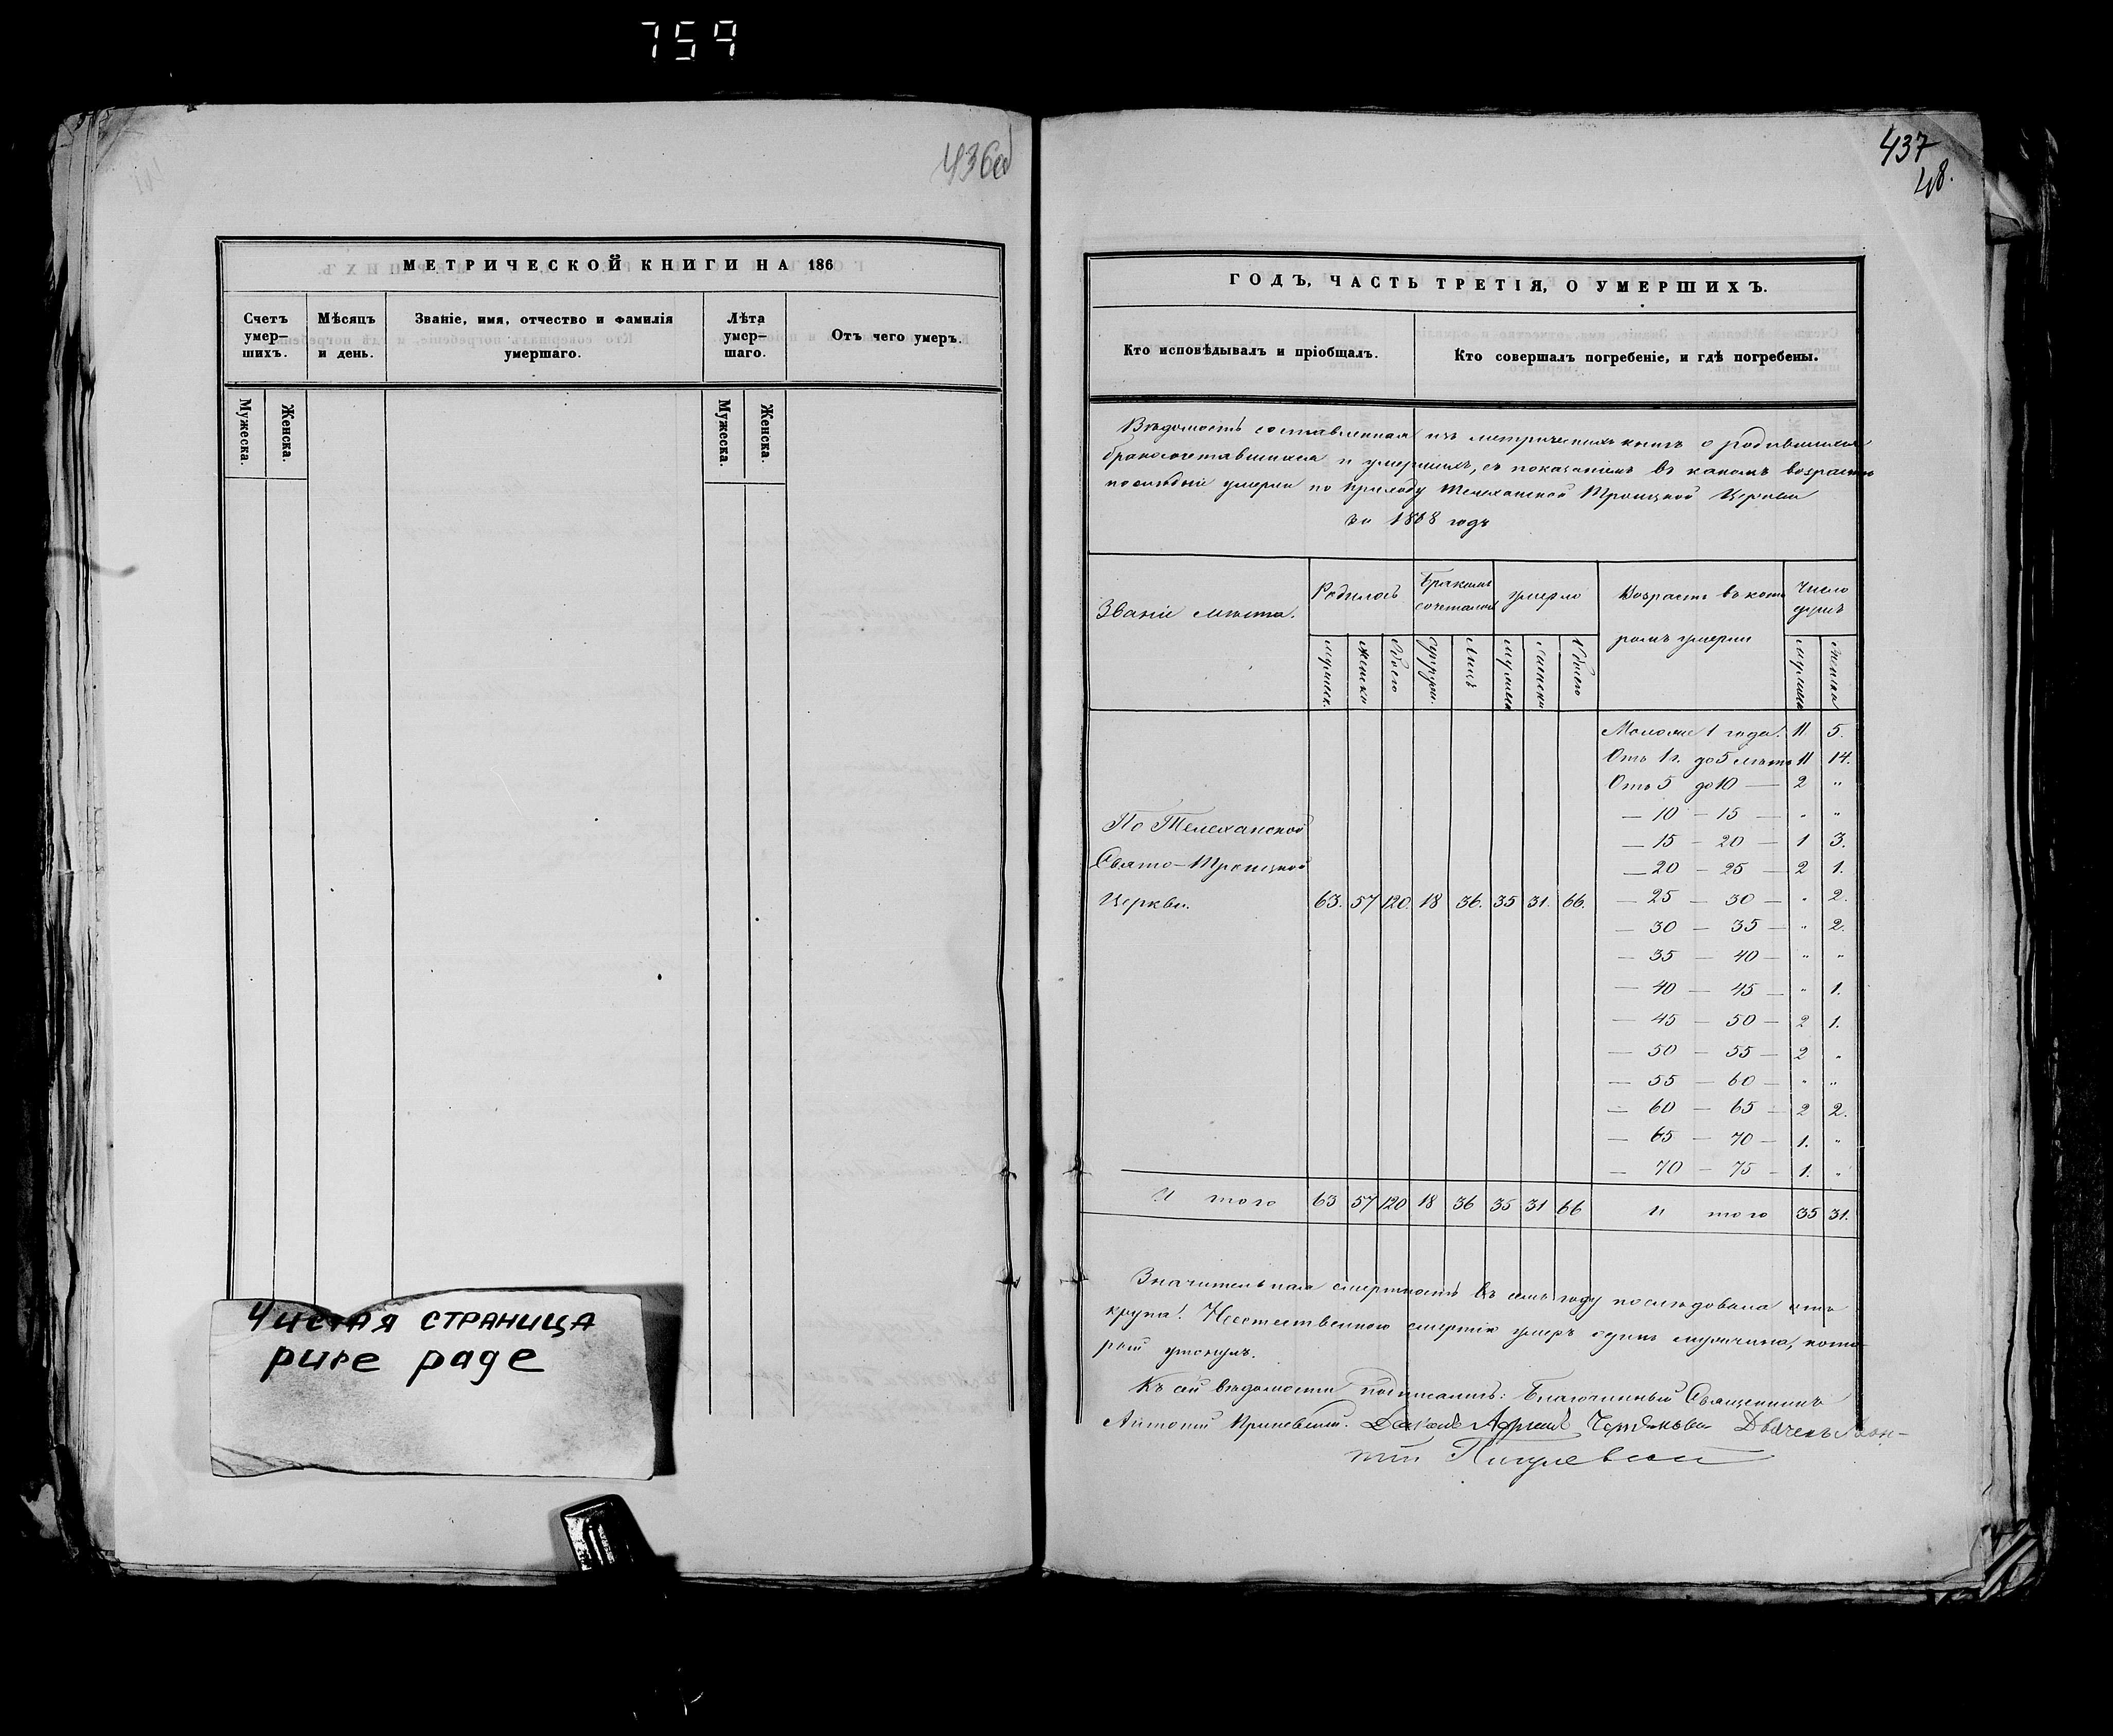 759
436об
МЕТРИЧЕСКОЙ КНИГИ НА 186
Счетъ умер-шихъ.
Мѣсяцъ и день.
Званіе, имя, отчество и фамилія умершаго.
Лѣта умер-шаго.
Отъ чего умеръ.
Мужеска.
Женска.
Мужеска.
Женска.
Чистая страница
pure page
437
48.
ГОДЪ, ЧАСТЬ ТРЕТІЯ, О УМЕРШИХЪ.
Кто исповѣдывалъ и пріобщалъ.
Кто совершалъ погребеніе, и гдѣ погребены.
Вѣдомость составленная изъ метрическихъ книгъ о родившихся
бракосочетавшихся и умершихъ, съ показаніемъ въ какомъ возрастѣ
послѣдніе умерли по приходу Телеханской Троицкой Церкви
за 1868 годъ
Званіе мѣста.
Родилось
Бракомъ сочеталось
умерло
Возрастъ въ кото
ромъ умерли
Число душъ
мужеск.
женска
обоего
супруж.
лицъ
мужеска
женска
обоего
мужеска
женска
Моложе 1 года. 11 5.
Отъ 1 г. до 5 лѣтъ 11 14.
Отъ 5 до 10 — 2 „
— 10 — 15 — „ „
— 15 — 20 — 1 3.
— 20 — 25 — 2 1.
— 25 — 30 — „ 2.
— 30 — 35 — „ 2.
— 35 — 40 — „ „
— 40 — 45 — „ 1.
— 45 — 50 — 2 1.
— 50 — 55 — 2 „
— 55 — 60 — „ „
— 60 — 65 — 2 2.
— 65 — 70 — 1. „
— 70 — 75 — 1. „
По Телеханской
Свято-Троицкой
Церкви. 63. 57 120. 18 36. 35 31. 66.
И того 63 57 120 18 36 35 31 66 И того 35 31.
Значительная смертность въ семъ году послѣдовала отъ
крупа! Неестественною смертію умеръ одинъ мужчина, кото-
рый утонулъ.
Къ сей вѣдомости подписались: Благочинный Священникъ
Антоній